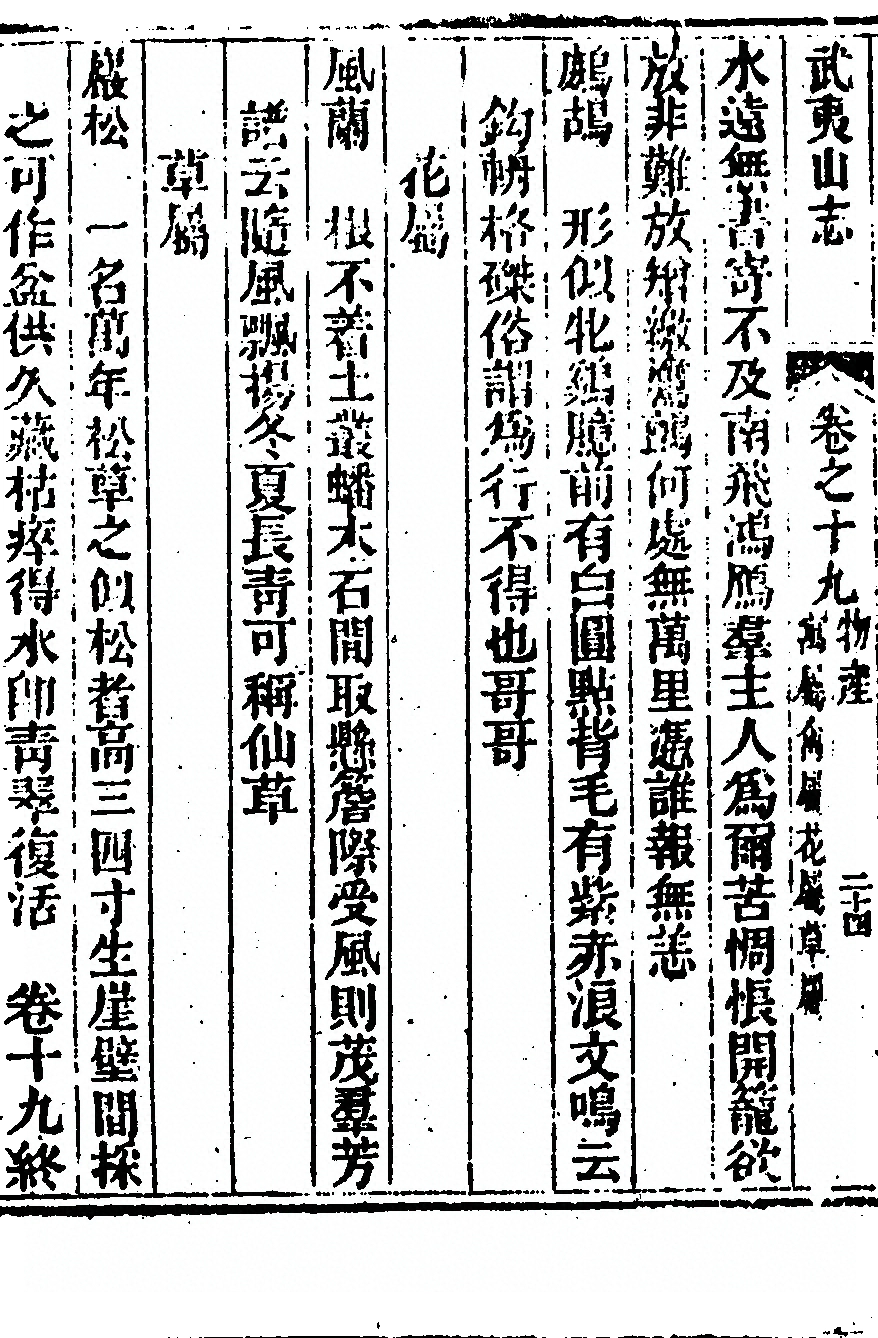 武夷山志
卷之十九
物產
禽屬花屬草屬
二十四
水遠無書寄不及南飛鴻鴈羣主人爲爾苦惆悵開籠欲
放非難放矰繳何處無萬里憑誰報無恙
鷓鴣 形似牝鷄臆前有白圓點背毛有紫赤浪文鳴云
鈎輈格磔俗謂爲行不得也哥哥
花屬
風蘭 根不着土叢蟠木石間取懸簷際受風則茂羣芳
譜云隨風飄揚冬夏長靑可稱仙草
草屬
巖松 一名萬年松草之似松者高三四寸生崖壁間採
之可作盆供久藏枯瘁得水卽靑翠復活 卷十九終